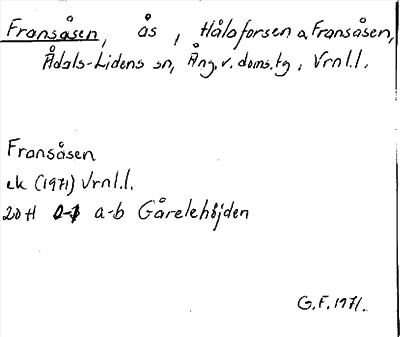 Fransåsen, ås, Hålaforsen o. Fransåsen,
Ådals-Lidens sn, Ång. v. doms. tg, Vrnl.l.
Fransåsen
ek (1971) Vrnl.l.
20 H a-b Gårelehöjden
G.F. 1971.